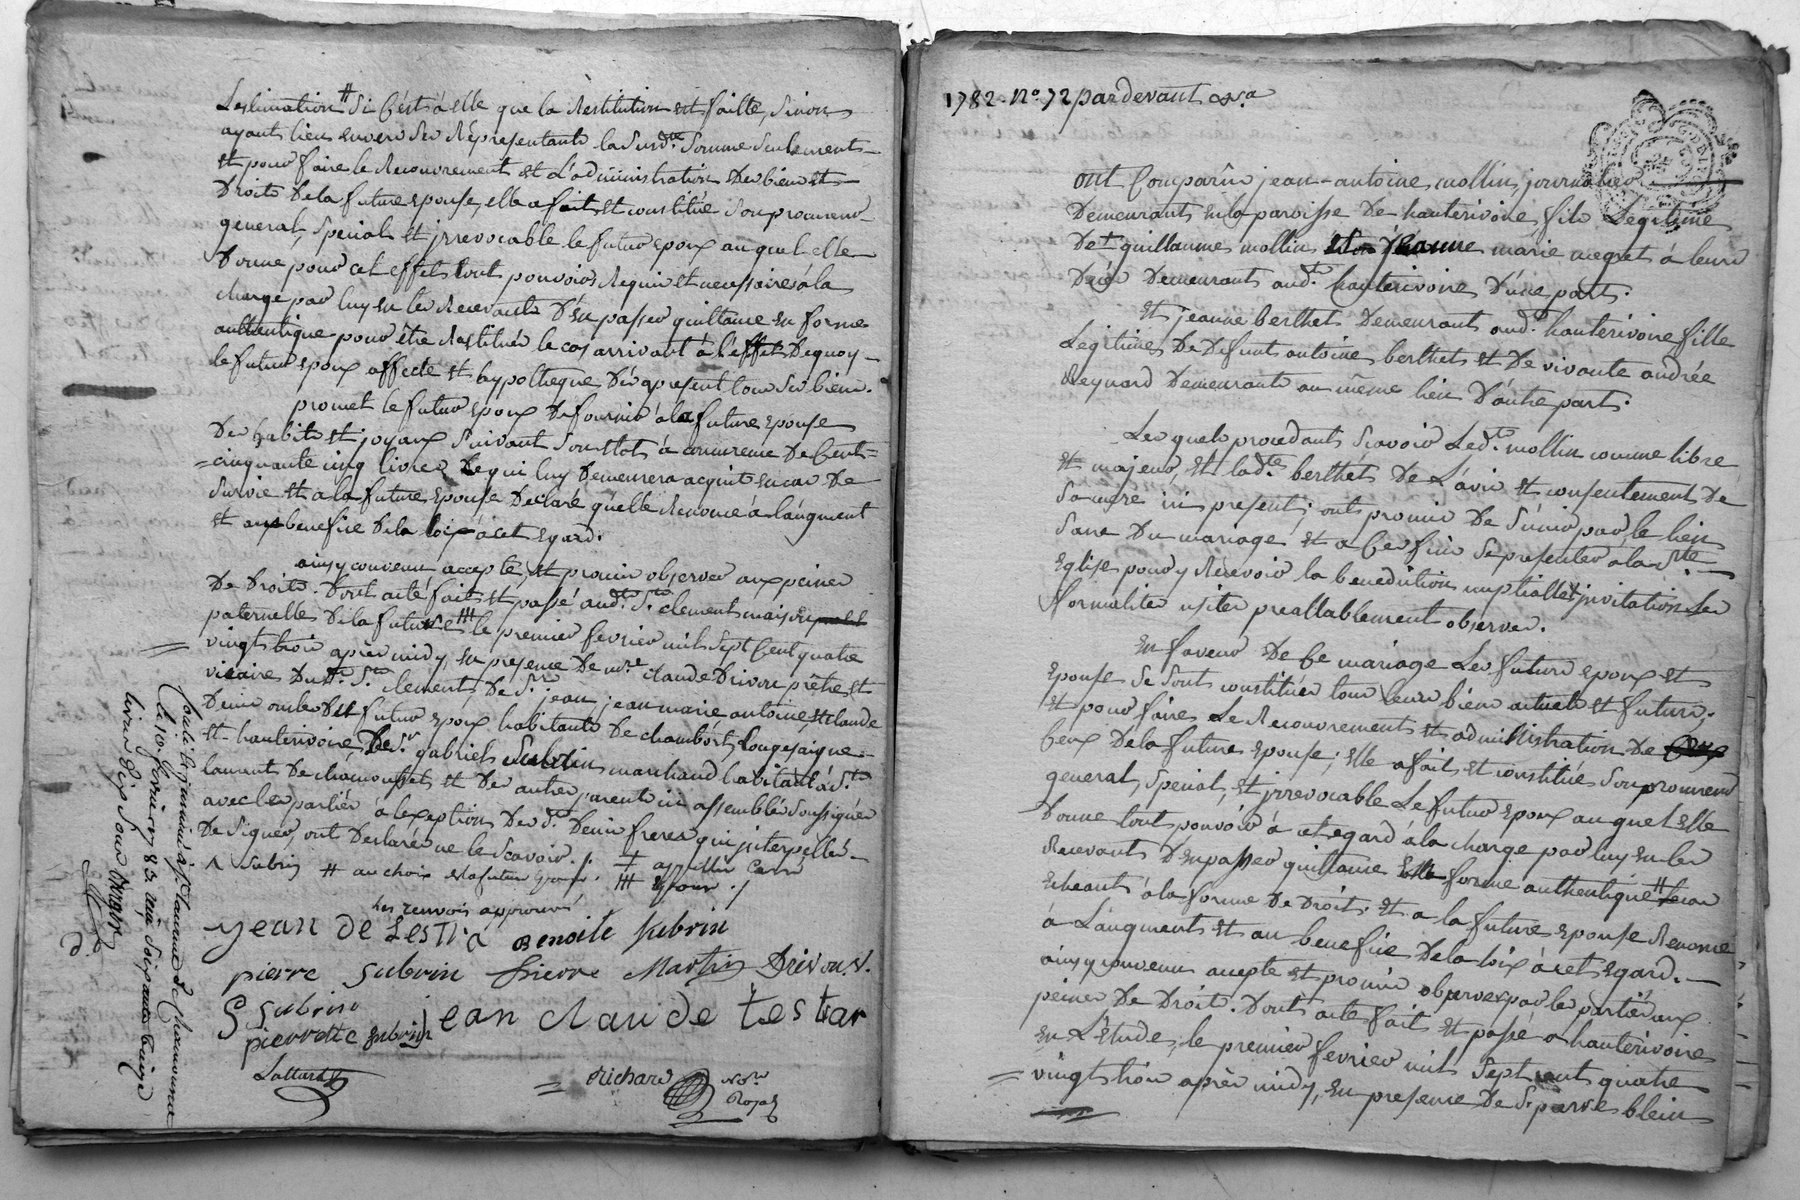 L'estimation # si c'est à elle que la restitution est faitte, sinon
ayant lieu envers ses représentants la susd.e somme seulement
et pour faire le recouvrement et l'administration des biens et
Droits De la future epouse, elle a fait et constitué son procureur
general, special et jrrevocable le futur epoux auquel elle
Donne pour cet effet tout pouvoirs requis et necessaires à la
charge par luy en les recevants D'en passer quittance en forme
authentique pour être restitués le cas arrivant à l'effet De quoy
le futur epoux affecte et hypotheque Dès apresent tous ses biens.
promet le futur epoux De fournir à la future epouse
Des habits et joyaux suivant son etat à concurence De cent
cinquante cinq livres Le qui luy Demeurera acquit en cas De
survie et à la future epouse Declaré qu'elle renonce à l'augment
et aux benefice De la loix à cet egard.
ainsy convenu accepté, et promis observer aux peines
De Droits. Dont acte fait et passé aud.t S.t clement maison
paternelle De la future ||| le premier fevrier mil sept cent quatre
vingt trois après midy, en presence De m.re claude Drivon prêtre et
vicaire Dud.t S.t clement, De S.rs jean, jean marie antoine, et claude
Denis oncles futur epoux habitants De chambost, Longesaigne
et hauterivoire, De S.r gabriel marchand habitant à S.t
laurent De chamousset et De autres parents ici assemblés soussignés
avec les parties à l'exception Des d.ts Denis freres qui jnterpellés
De signer, ont Declaré ne le scavoir ./.
subrin # au choix de la future epouse ||| epoux ./
Les renvois approuvés
jean de Lestra Benoite subrin
pierre subrin pierre Martin Drivon. V.
S subrin
pierrette subrin jean claude testar
Richard No.re
Royal
Controllé à S.t Laurent De Chamousset
le 10 fevrier 83 reçu
livres Dix sous
1782. N.o 72 pardevant &.a
ont comparûs jean-antoine mollin, journalier
Demeurant en la paroisse De hauterivoire, fils Legitime
De guillaume mollin jeanne marie megret à leurs
Demeurant aud.t hauterivoire D'une part.
Et jeanne berthet Demeurant aud.t hauterivoire fille
Legitime De Defunt antoine berthet et De vivante andrée
Reynard Demeurante au même lieu D'autre part.
Les quels procedants scavoir Led.t mollin comme libre
et majeur, et lad.te berthet De L'avis et consentement De
sa mere ici present; ont promis De s'unir par le lien
sacré Du mariage et a ces fins se presenter à la S.te
Eglise pour y recevoir la benediction nuptialle jnvitation Les
formalités usitées preallablement observées.
En faveur De ce mariage Les futurs epoux et
epouse se sont constitués tous leurs biens actuels et futurs,
et pour faire Le recouvrement et administration De
ceux De la future epouse; elle a fait et constitué son procureur
general, special, et jrrevocable Le futur epoux auquel elle
Donne tout pouvoir à cet egard à la charge par luy en les
recevants D'en passer quittance en forme authentique #
echeant à la forme De Droit. et a la future epouse renoncé
à L'augment et au benefice De la loix à cet egard.
ainsy convenu accepté et promis observer par les parties aux
peines De Droit. Dont acte fait et passé a hauterivoire
en L'étude, le premier fevrier mil sept cent quatre
vingt trois après midy, en presence De S.r pierre blein